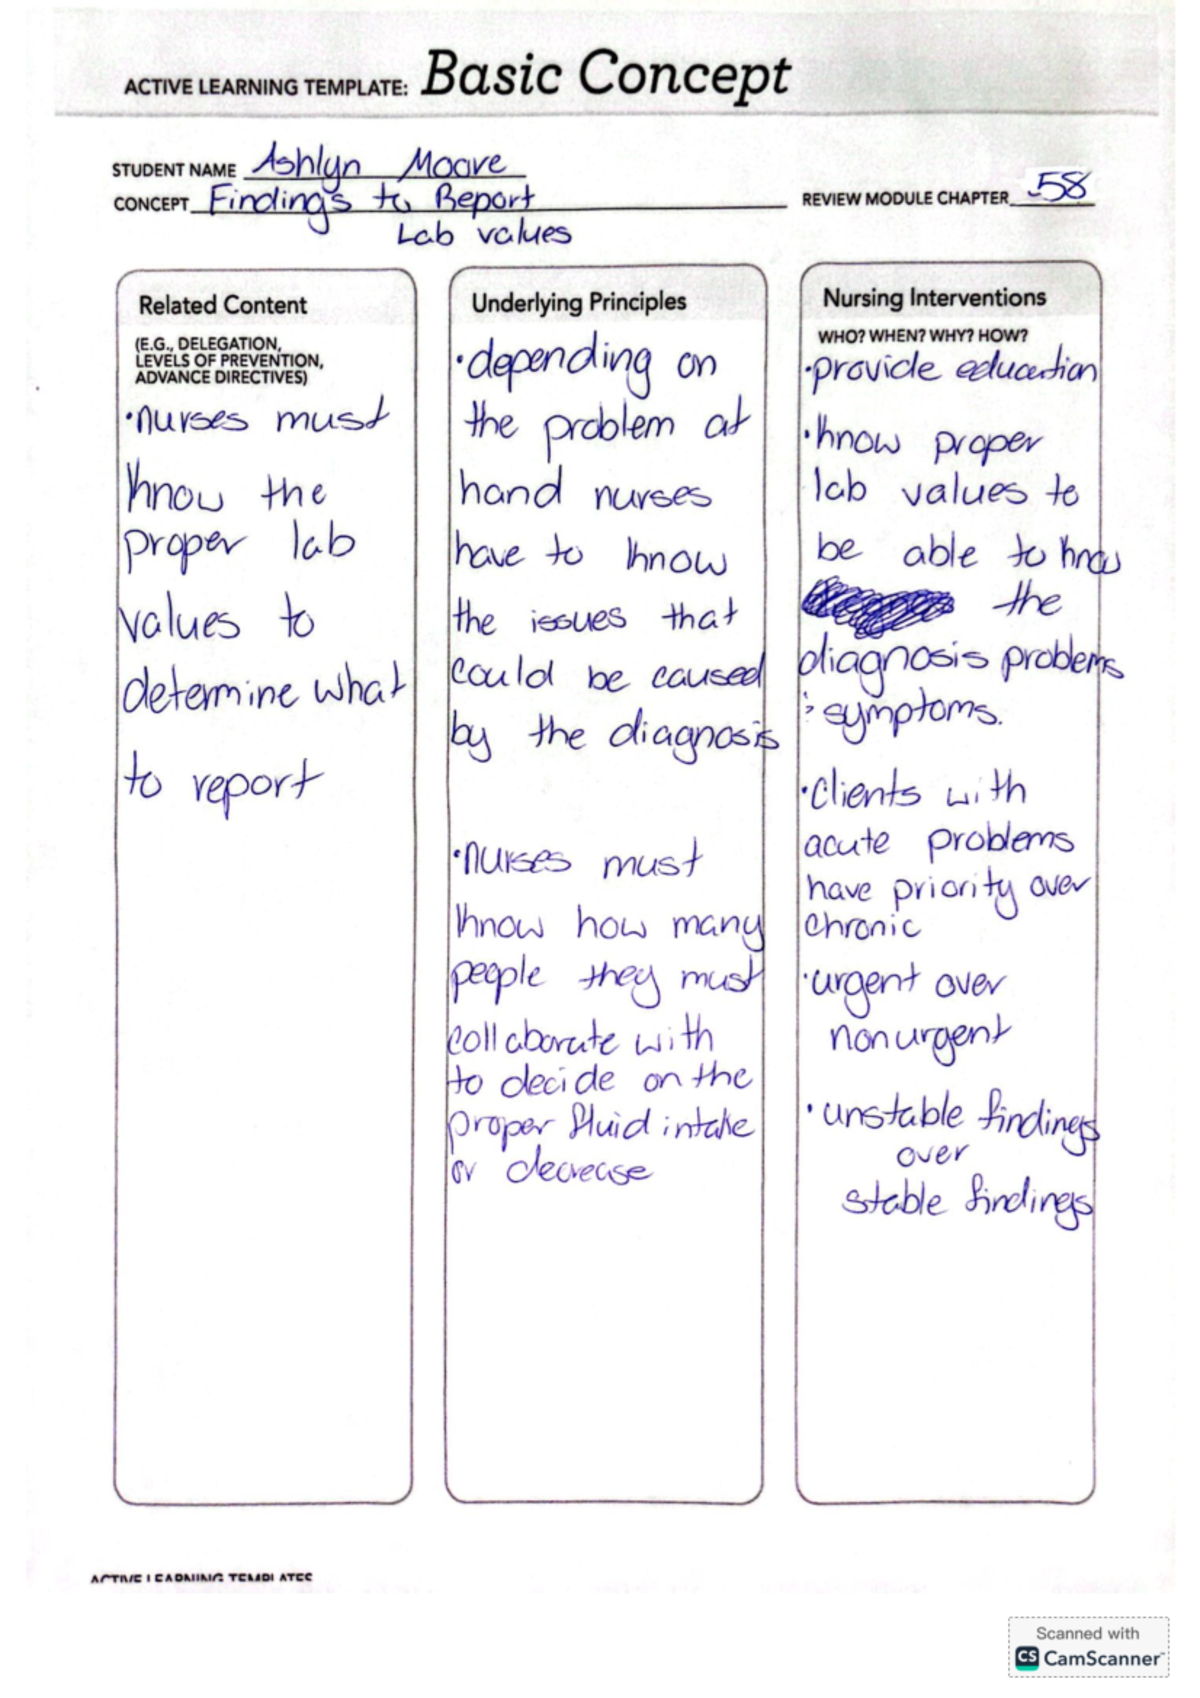 ACTIVE LEARNING TEMPLATE: Basic Concept
STUDENT NAME Ashlyn Moore
CONCEPT Findings to Report
Lab values
REVIEW MODULE CHAPTER 58
Related Content
(E.G., DELEGATION,
LEVELS OF PREVENTION,
ADVANCE DIRECTIVES)
•nurses must
know the
proper lab
values to
determine what
to report
Underlying Principles
•depending on
the problem at
hand nurses
have to know
the issues that
could be caused
by the diagnosis
•nurses must
know how many
people they must
collaborate with
to decide on the
proper fluid intake
or decrease
Nursing Interventions
WHO? WHEN? WHY? HOW?
•provide education
•know proper
lab values to
be able to know
the
diagnosis problems
: symptoms.
•clients with
acute problems
have priority over
chronic
•urgent over
nonurgent
•unstable findings
over
stable findings
ACTIVE LEARNING TEMPLATES
Scanned with
CS CamScanner